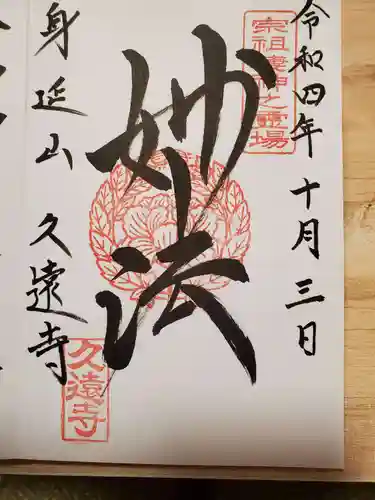 令和四年 十月三日
宗祖棲神之霊場
妙法
身延山 久遠寺
久遠寺